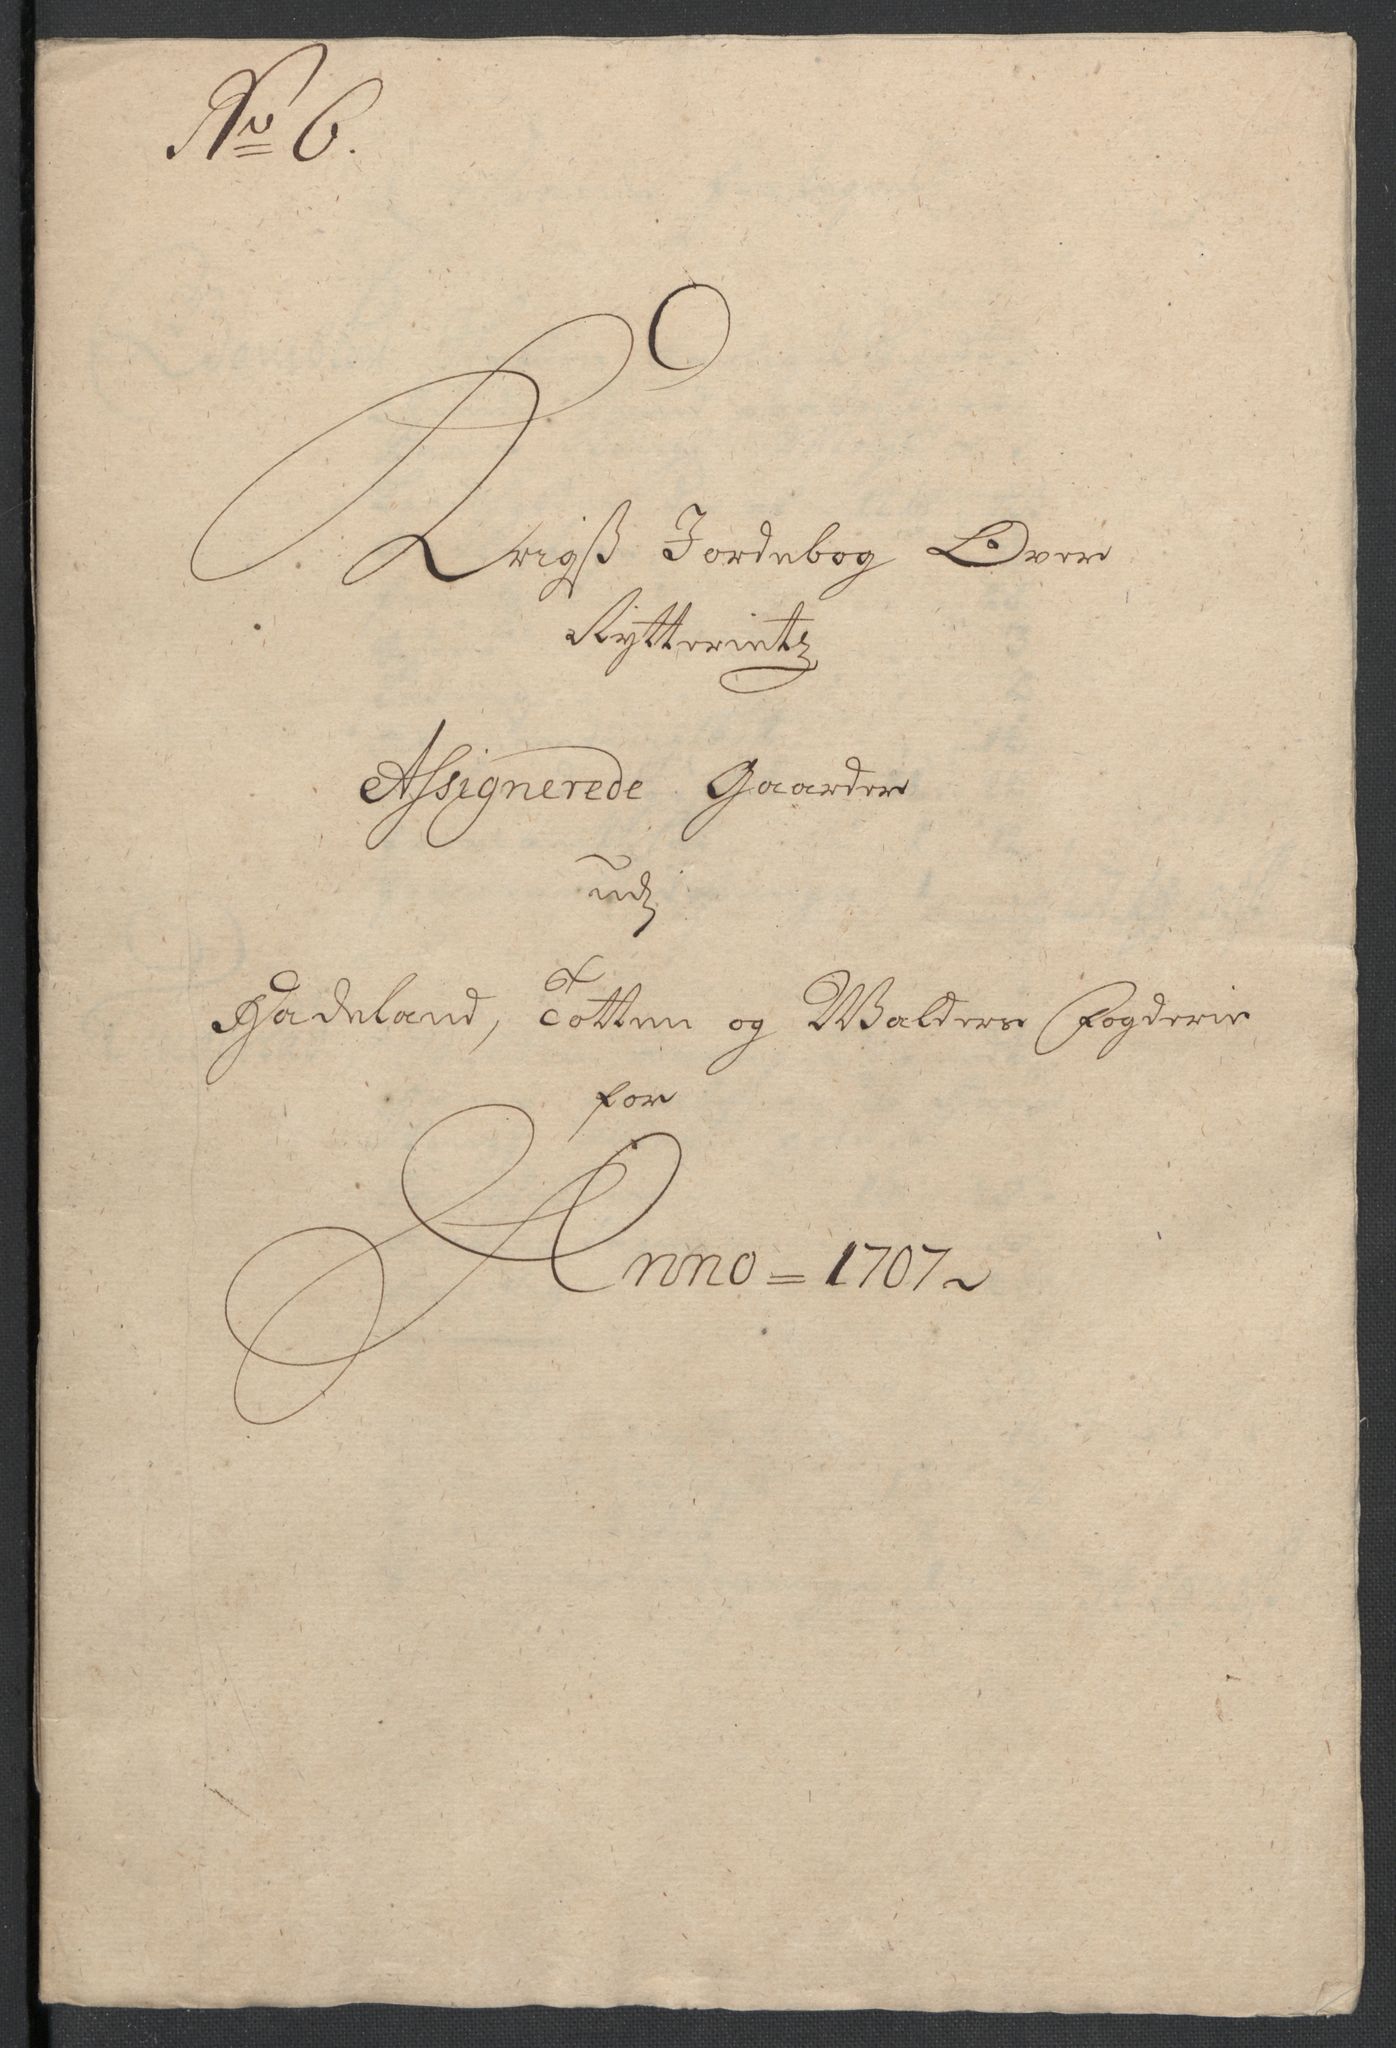 No 6.
Krigsß Jordebog Over
Rytteriets
Assignerede Gaarder
udj
Hadeland, Totten og Walders Fogderie
for
Anno = 1707